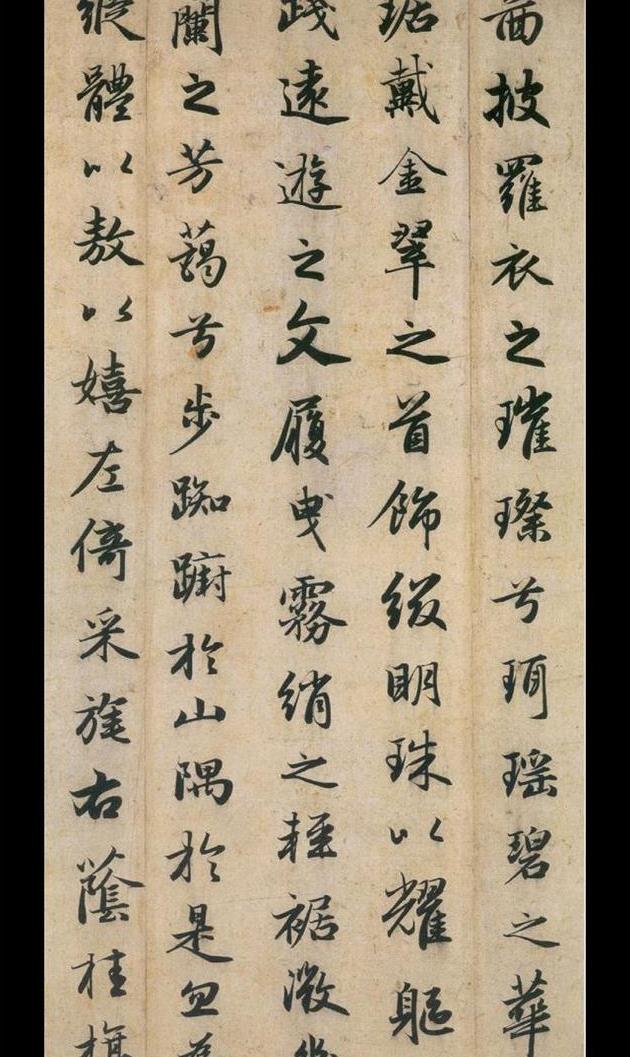 披羅衣之璀璨兮珥瑤碧之華
琚戴金翠之首飾綴明珠以耀軀
踐遠遊之文履曳霧綃之輕裾微
蘭之芳藹兮步踟躕於山隅於是忽
縱體以敖以嬉左倚采旄右蔭桂旗